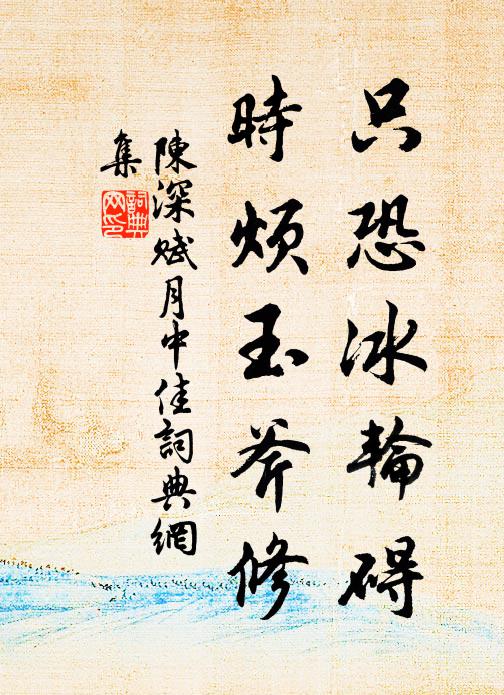 只恐冰輪碍
時煩玉斧修
陳深賦月中佳詞典網
集
詞典網印